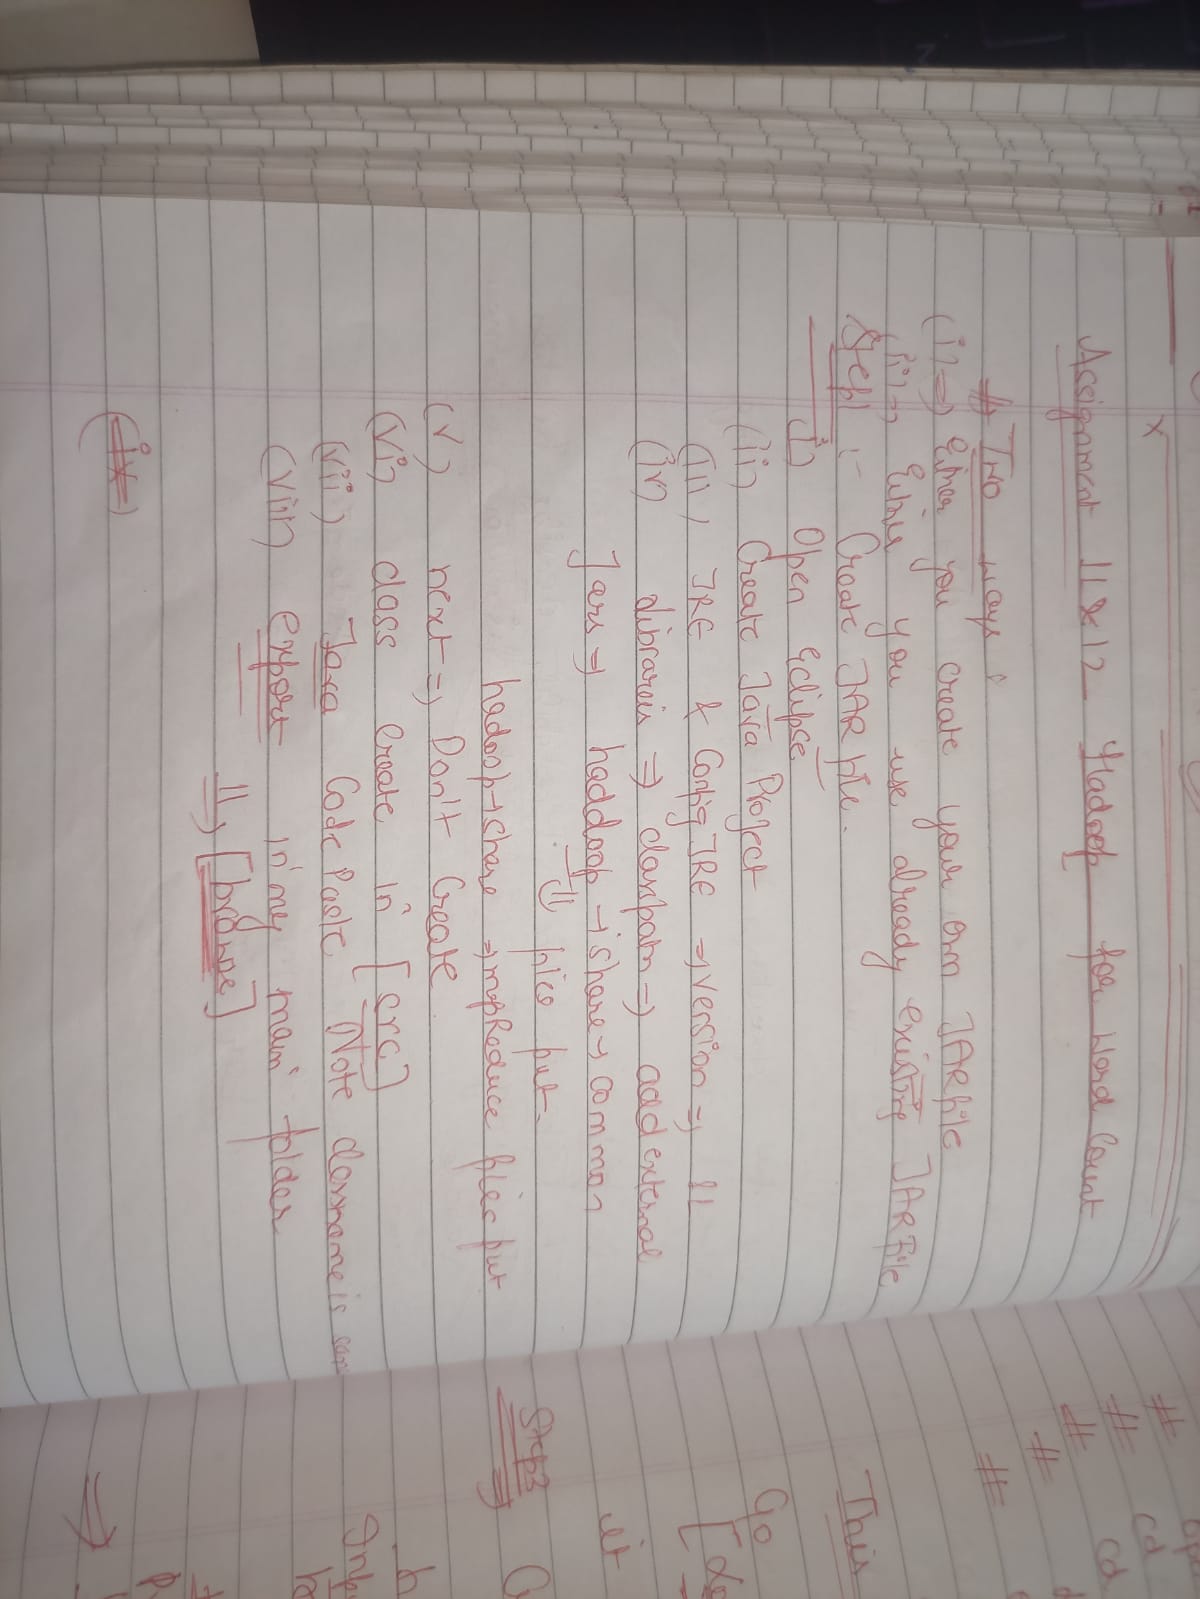 Assignment 11 & 12 Hadoop for Word Count
# Two ways :
(i) => Either you create your own JAR file
(ii) => Either you use already existing JAR File.
Step1 :- Create JAR file.
(i) Open Eclipse
(ii) Create Java Project
(iii) JRE & Config JRE => version => 11
(iv) libraries => classpath => add external
Jars => haddoop -> share -> common
files put.
hadoop -> share => mapReduce files put
(v) next => Don't Create
(vi) class create in [src]
(vii) Java Code Paste Note classname is
(viii) export in my main folder.
=> [browse]
(ix)
x
#
# cd
# cd
#
#
This
Go
it
Step2
=>